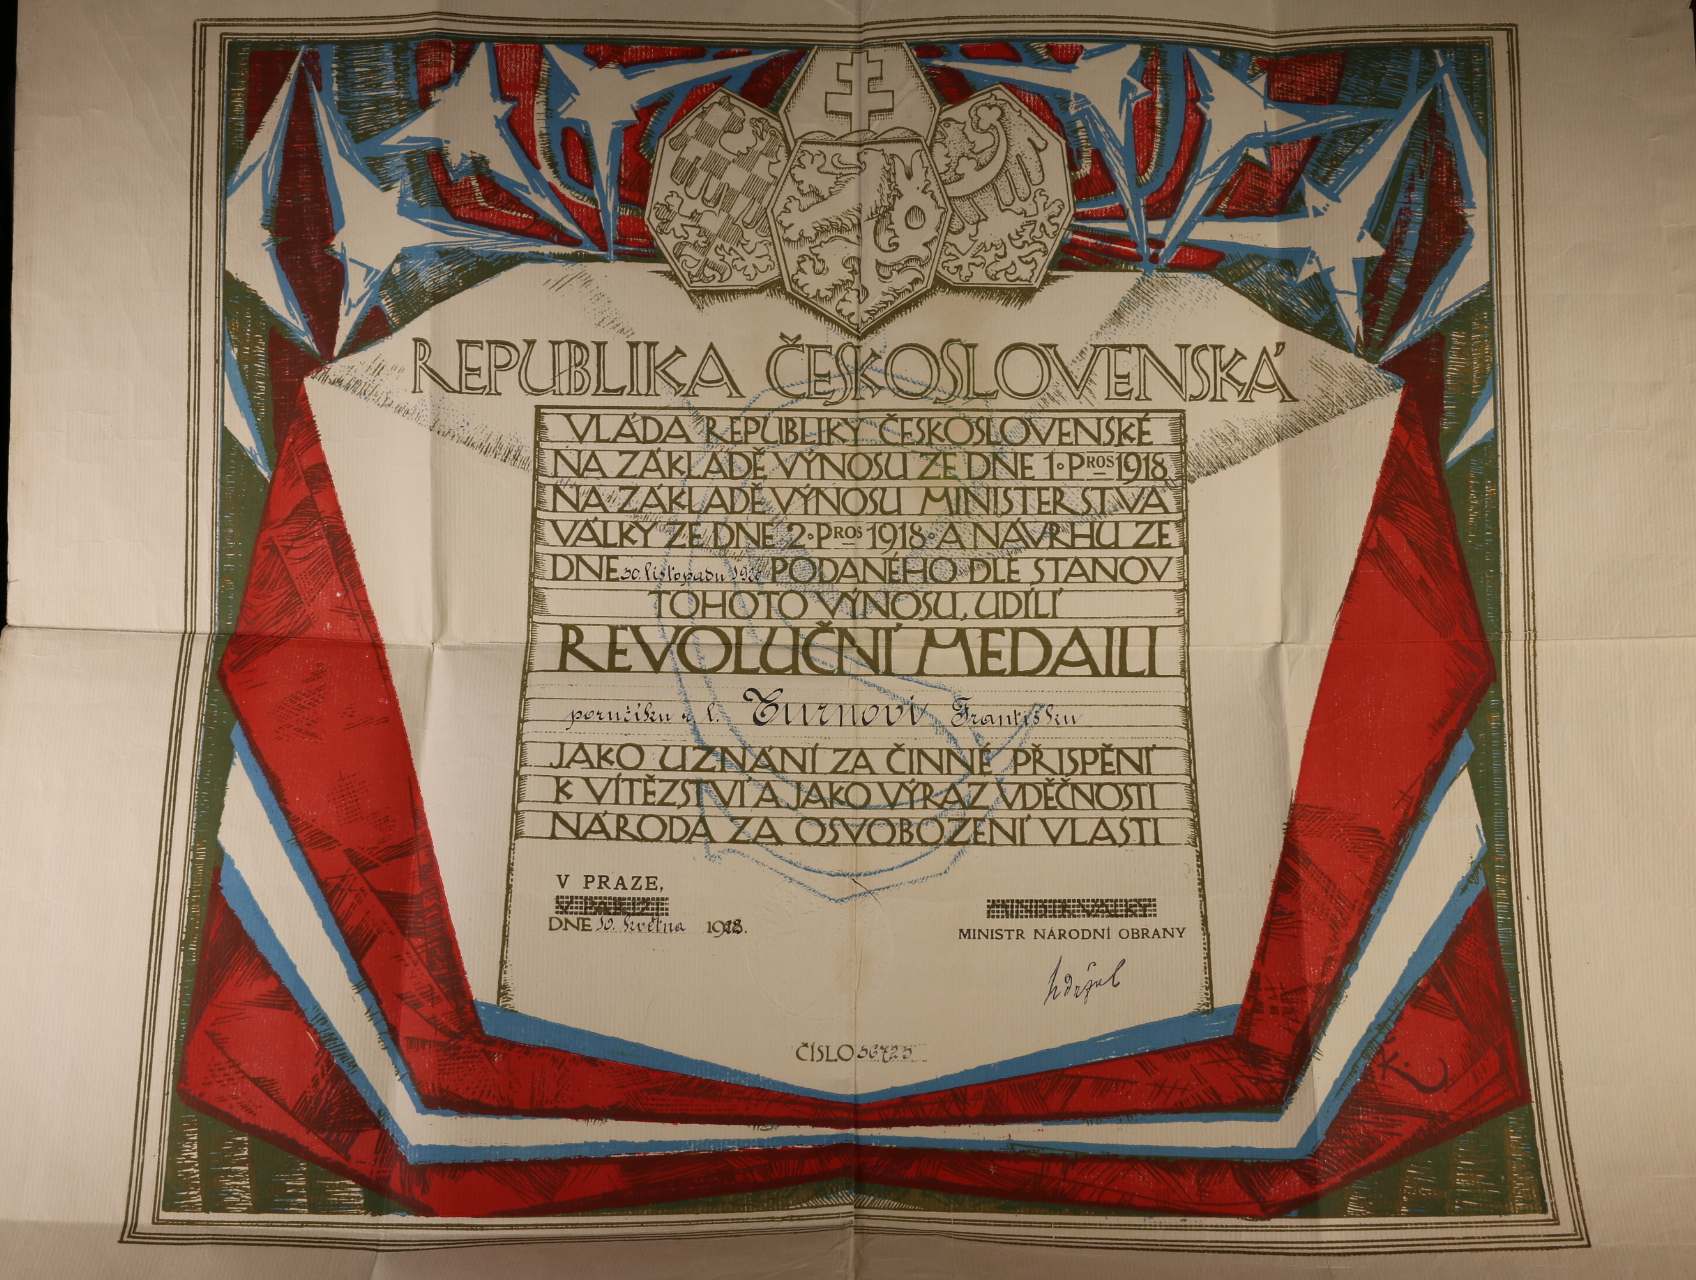 REPUBLIKA ČESKOSLOVENSKÁ
VLÁDA REPUBLIKY ČESKOSLOVENSKÉ
NA ZÁKLADĚ VÝNOSU ZE DNE 1·PROS 1918
NA ZÁKLADĚ VÝNOSU MINISTERSTVA
VÁLKY ZE DNE 2·PROS 1918·A NÁVRHU ZE
DNE 30. listopadu PODANÉHO DLE STANOV
TOHOTO VÝNOSU, UDÍLÍ
REVOLUČNÍ MEDAILI
poručíku Františku
JAKO UZNÁNÍ ZA ČINNÉ PŘISPĚNÍ
K VÍTĚZSTVÍ A JAKO VÝRAZ VDĚČNOSTI
NÁRODA ZA OSVOBOZENÍ VLASTI
V PRAZE,
DNE 30. května
MINISTR NÁRODNÍ OBRANY
ČÍSLO